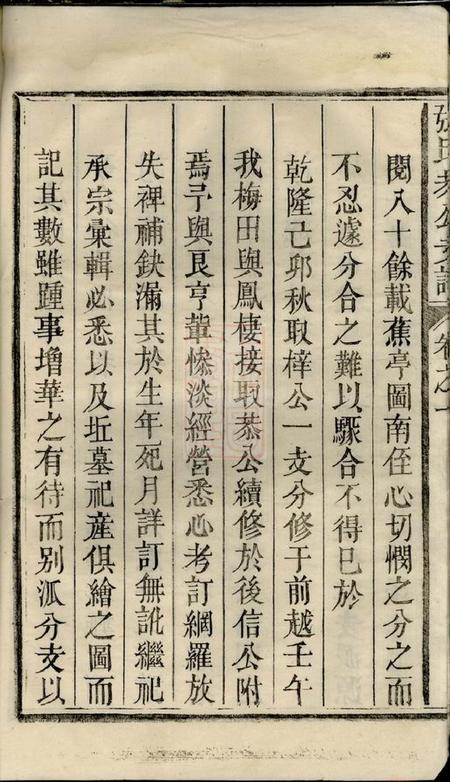 張氏恭公支譜 卷之一
閱八十餘載蕉亭圖南侄心切憫之分之而
不忍遽分合之難以驟合不得已於
乾隆己卯秋取梓公一支分修于前越壬午
我梅田與鳳棲接取恭公續修於後信公附
焉予與艮亨輩慘淡經營悉心考訂網羅放
失裨補缺漏其於生年死月詳訂無訛繼祀
承宗彙輯必悉以及坵墓祀產俱繪之圖而
記其數雖踵事增華之有待而別派分支以